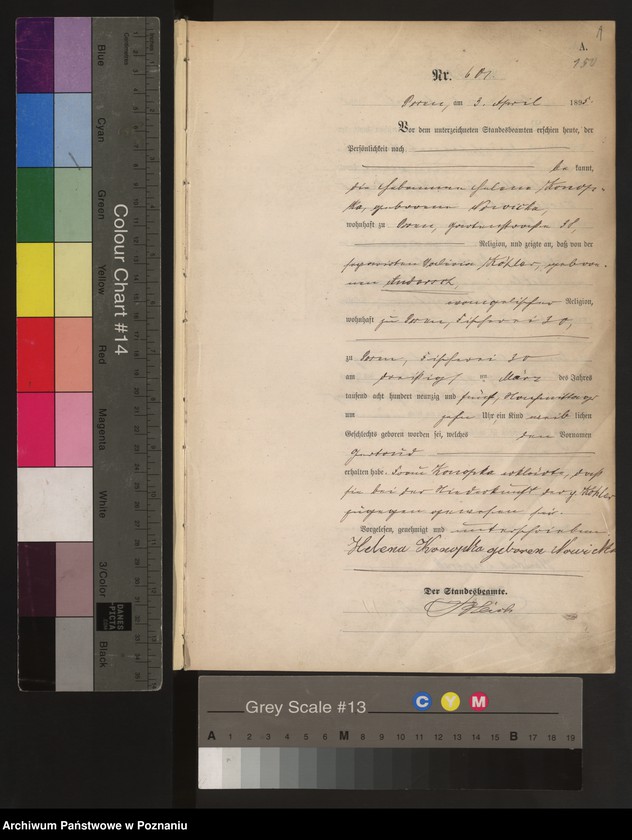 A.
Nr. 601.
Posen, am 3. April 1895.
Vor dem unterzeichneten Standesbeamten erschien heute, der
Persönlichkeit nach
be kannt,
die Hebamme Helene Konop-
ka, geborene Nowicka,
wohnhaft zu Posen, Gartenstraße
Religion, und zeigte an, daß von der
separirten Köhler, gebore-
nen
evangelischer Religion,
wohnhaft zu Posen, Fischerei 30,
zu Posen, Fischerei 30
am dreißigsten März des Jahres
tausend acht hundert neunzig und fünf, Nachmittags
um zehn Uhr ein Kind weib lichen
Geschlechts geboren worden sei, welches den Vornamen
Gertrud
erhalten habe. Frau Konopka erklärte, daß
sie bei der Niederkunft der p. Köhler
zugegen gewesen sei.
Vorgelesen, genehmigt und unterschrieben
Helena Konopka geboren Nowicka
Der Standesbeamte.
Colour Chart #14
Blue
Cyan
Green
Yellow
Red
Magenta
White
3/Color
Black
DANES
-PICTA
Grey Scale #13
C Y M
A 1 2 3 4 5 6 M 8 9 10 11 12 13 14 15 B 17 18 19
Archiwum Państwowe w Poznaniu